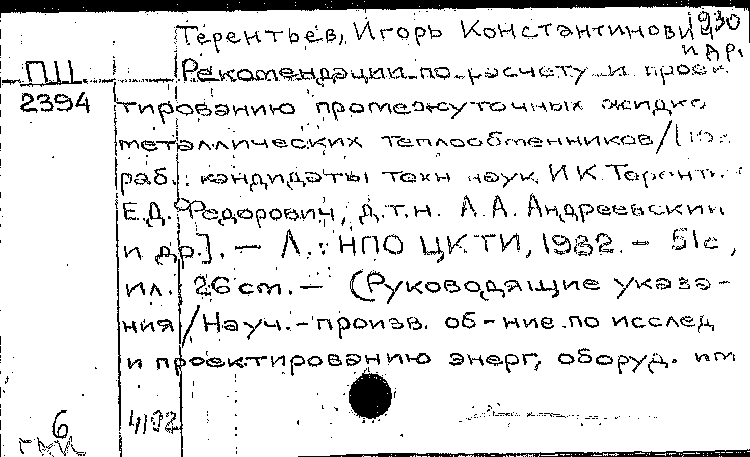 Терентьев, Игорь Константинович 1930
и др.
П11 Рекомендации по расчету и проек-
2394 тированию промежуточных жидко
металлических теплообменников/[
раб.: кандидаты техн наук И.К. Терент.
Е.Д. Федорович, д.т.н. А.А. Андреевский
и др.]. — Л.: НПО ЦКТИ, 1982. — 51с,
ил.; 26 cm. — (Руководящие указа-
ния/Науч.-произв. об-ние по исслед
и проектированию энерг, оборуд. им
6 4102